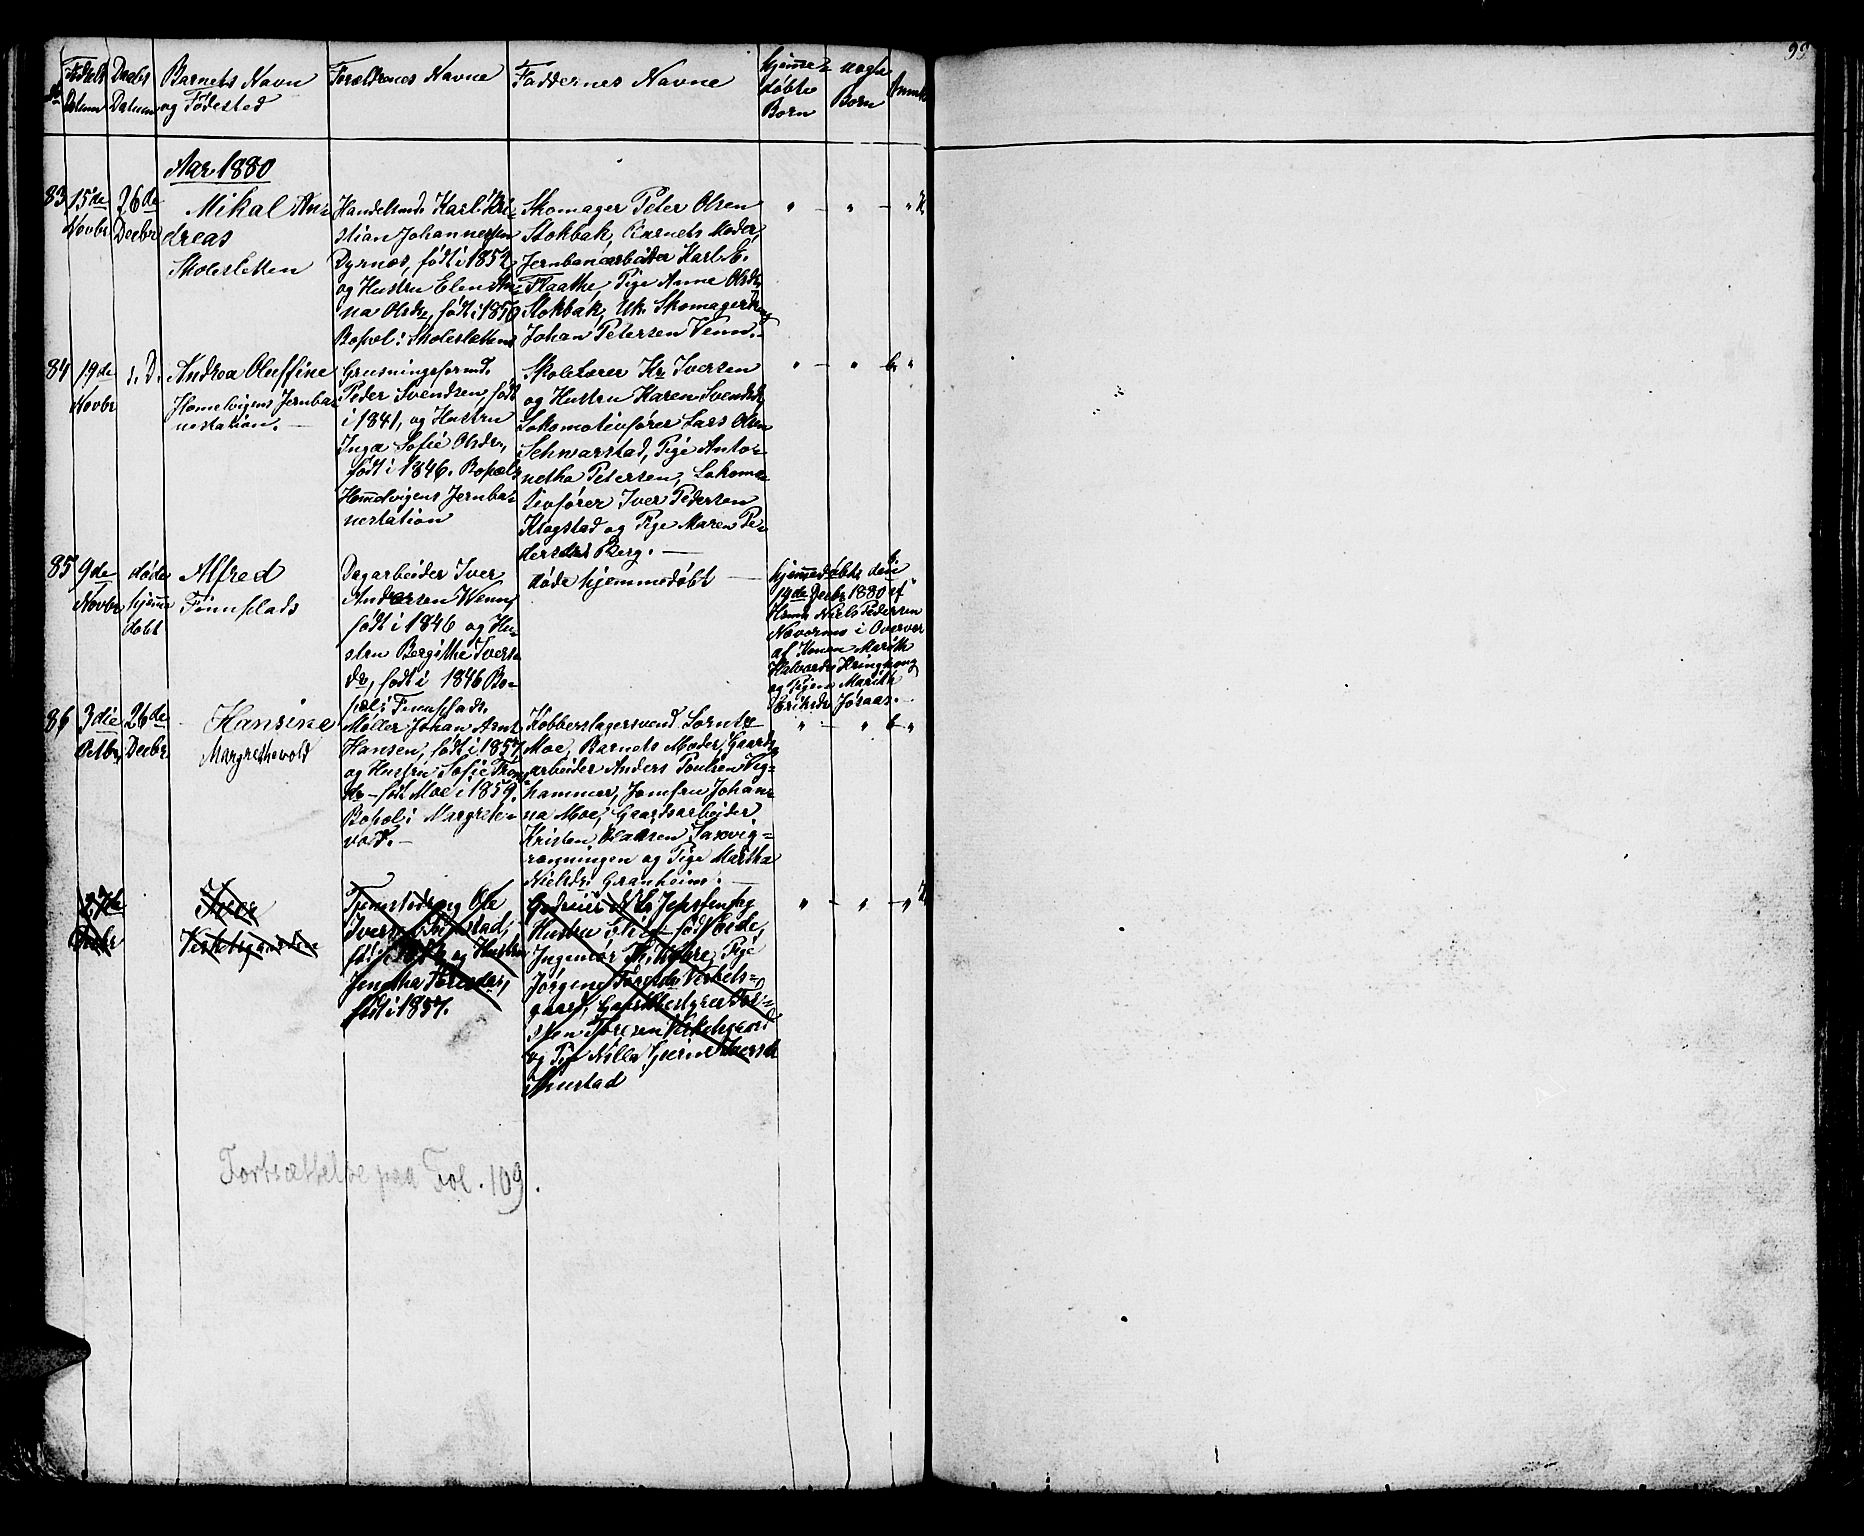 99
No Fødsels Datum
Daabs Datum
Barnets Navn og Fødested
Forældrenes Navne
Faddernes Navne
hjemme- døbte Børn
uægte Børn
Anmk
Aar 1880
83 15de Novbr
26de Decbr
Mikal An-
dreas
Skolesletten
Handelsmd. Karl Kri-
stian Johannessen
Dyrnæs, født i 1852,
og Hustru Elen An-
na Olsdr, født i 1850
Bopæl: Skolesletten
Skomager Peter Olsen
Stokbak, Barnets Moder,
Jernbanearbeider Karl E.
Flaathe, Pige Anne Olsdr
Stokbak, Uk. Skomagerdreng
Johan Petersen Venn.
84 19de Novbr
s. D.
Andrea Oluffine
Homelvigens Jernba-
nestation.
Grusningsformd.
Peder Svendsen, født
i 1841, og Hustru
Inga Sofie Olsdr,
født i 1846. Bopæl:
Hommelvigens Jernba-
nestation
Skolelærer Kr. Iversen
og Hustru Karen Svendsdr,
Lokomotivfører Lars Olsen
Schwarstad, Pige Anto-
netha Petersen, Lokomo-
tivfører Iver Pedersen
Klogstad og Pige Maren Pe-
dersdr Berg.
85 9de Novbr
døde hjemme døbt
Alfred
Finnplads
Dagarbeider Iver
Andersen Wenn,
født i 1846 og Hu-
stru Bergithe Ivers-
dr, født i 1846 Bo-
pæl: Finnplads.
døde hjemmedøbt
hjemmedøbt den
19de Decbr 1880 af
Niels Pedersen
i Overvær
af Konen Marith
Halvardsdr
og Pigen Marith
Eriksdr Jøraas.
86 3die Octbr
26de Decbr
Hansine
Margrethevold
Møller Johan Arnt
Hansen, født i 1857,
og Hustru Sofie
født Moe i 1859.
Bopæl: Margrete-
vold.
Kobberslagersvend Lornts
Moe, Barnets Moder, Gaards-
arbeider Anders Poulsen Vig-
hammer, Jomfru Johan-
na Moe, Gaardsarbejder
Kristen Olausen Saxvig-
rønningen og Pige Martha
Nielsdr Granheim.
27de
Iver
Virkelsgaarden
Ole
Iversen
født i og Hustru
født i 1857.
Jensen og
Hustru født Eide,
Ingeniør Pige
Jørgine Toresdr Virkels-
gaard,
Toresen Virkelsgaard
og Pige Iversdr
Fortsættelse paa Fol. 109.